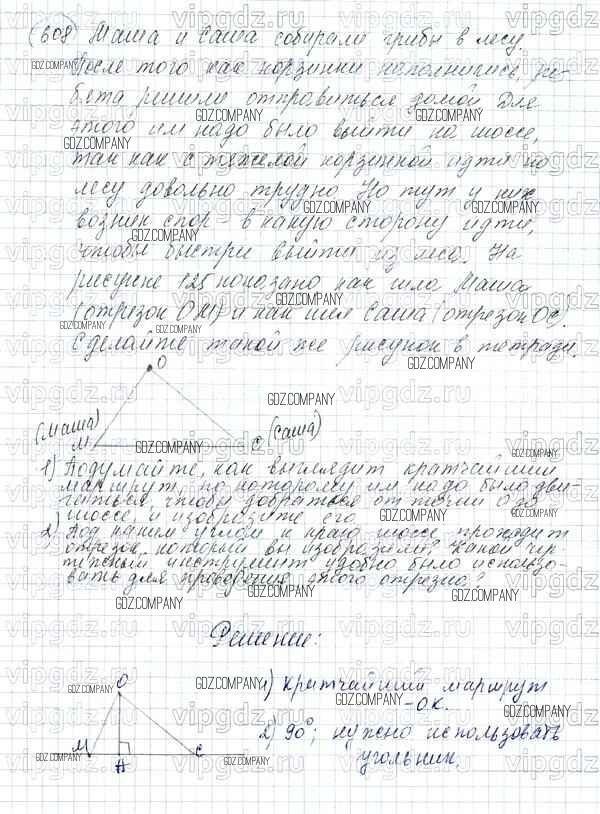 608 Маша и Саша собирали грибы в лесу.
После того как корзинки наполнились, ре-
бята решили отправиться домой Для
этого им надо было выйти на шоссе,
так как с тяжелой корзинкой идти по
лесу довольно трудно Но тут у них
возник спор - в какую сторону идти,
чтобы быстрее выйти из леса. На
рисунке 125 показано как шла Маша
(отрезок ОМ) и как шел Саша (отрезок ОС).
Сделайте такой же рисунок в тетради.
О
(Маша)
М
С
(Саша)
1) Подумайте, как выглядит кратчайший
маршрут, по которому им надо было дви-
гаться, чтобы добраться от точки О до
шоссе, и изобразите его
2) Под каким углом к краю шоссе проходит
отрезок, который вы изобразили? Какой чер
тежный инструмент удобно было использо-
вать для проведения этого отрезка?
Решение:
О
М
Н
С
1) Кратчайший маршрут
- ОК.
2) 90°; нужно использовать
угольник.
vipgdz.ru
GDZ.COMPANY